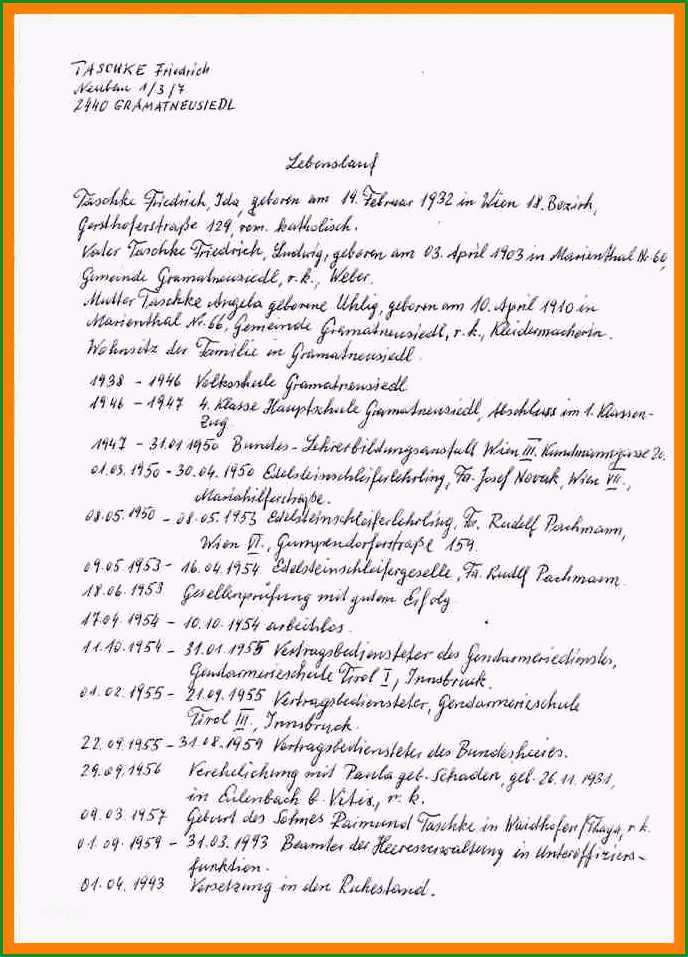 TASCHKE Friedrich
Neubau 1/3/7
2440 GRAMATNEUSIEDL
Lebenslauf
Taschke Friedrich, Ida, geboren am 14. Februar 1932 in Wien 18. Bezirk,
Gersthoferstraße 129, röm. katholisch.
Vater Taschke Friedrich, Ludwig, geboren am 03. April 1903 in Marienthal Nr. 60,
Gemeinde Gramatneusiedl, r. k., Weber.
Mutter Taschke Angela geborene Uhlig, geboren am 10. April 1910 in
Marienthal Nr. 66, Gemeinde Gramatneusiedl, r. k., Kleidermacherin.
Wohnsitz der Familie in Gramatneusiedl.
1938 - 1946 Volksschule Gramatneusiedl
1946 - 1947 4. Klasse Hauptschule Gramatneusiedl, Abschluss im 1. Klassen-
Zug
1947 - 31.01.1950 Bundes-Lehrerbildungsanstalt Wien III. Kundmanngasse 20.
01.03.1950 - 30.04.1950 Edelsteinschleiferlehrling, Fa. Josef Novak, Wien VII.,
Mariahilferstraße.
08.05.1950 - 08.05.1953 Edelsteinschleiferlehrling, Fa. Rudolf Pachmann,
Wien VI., Gumpendorferstraße 159.
09.05.1953 - 16.04.1954 Edelsteinschleifergeselle, Fa. Rudlf Pachmann.
18.06.1953 Gesellenprüfung mit gutem Erfolg.
17.04.1954 - 10.10.1954 arbeitslos.
11.10.1954 - 31.01.1955 Vertragsbediensteter des Gendarmeriedienstes,
Gendarmerieschule Tirol I, Innsbruck.
01.02.1955 - 21.09.1955 Vertragsbediensteter, Gendarmerieschule
Tirol III, Innsbruck.
22.09.1955 - 31.08.1959 Vertragsbediensteter des Bundesheeres.
29.09.1956 Verehelichung mit Paula geb. Schaden, geb. 26.11.1931,
in Eulenbach b. Vitis, r. k.
09.03.1957 Geburt des Sohnes Raimund Taschke in Waidhofen/Thaya, r. k.
01.09.1959 - 31.03.1993 Beamter der Heeresverwaltung in Unteroffiziers-
funktion.
01.04.1993 Versetzung in den Ruhestand.